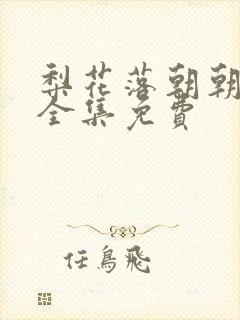 梨花落朝朝
全集免費
任鳥飛